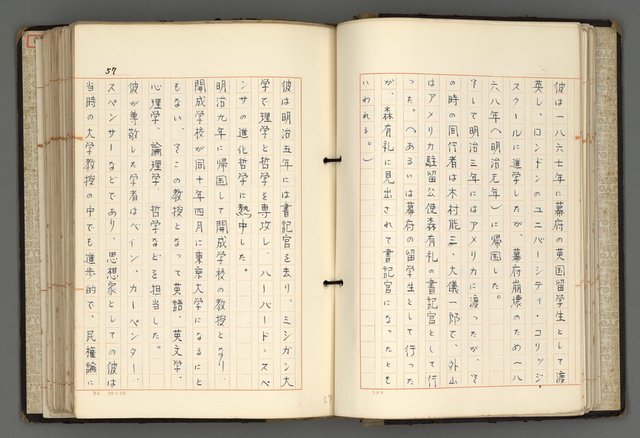 彼は一八六七年に幕府の英国留学生として渡
英し、ロンドンのユニバーシティ・コリッジ・
スクールに進学したが、幕府崩壊のため一八
六八年(明治元年)に帰国した。
そして明治三年にはアメリカに渡ったが、そ
の時の同行者は木村熊三、大儀一郎で、外山
はアメリカ駐留公使森有礼の書記官として行
った。(あるいは幕府の留学生として行った
が、森有礼に見出されて書記官になったとも
いわれる。)
57
彼は明治五年には書記官を去り、ミシガン大
学で理学と哲学を専攻し、ハーバード・スペ
ンサの進化哲学に熱中した。
明治九年に帰国して開成学校の教授となり、
開成学校が同十年四月に東京大学になるにと
もない、そこの教授となって英語、英文学、
心理学、論理学、哲学などを担当した。
彼が尊敬した学者はベイン、カーペンター、
スペンサーなどであり、思想家としての彼は
当時の大学教授の中でも進歩的で、民権論に